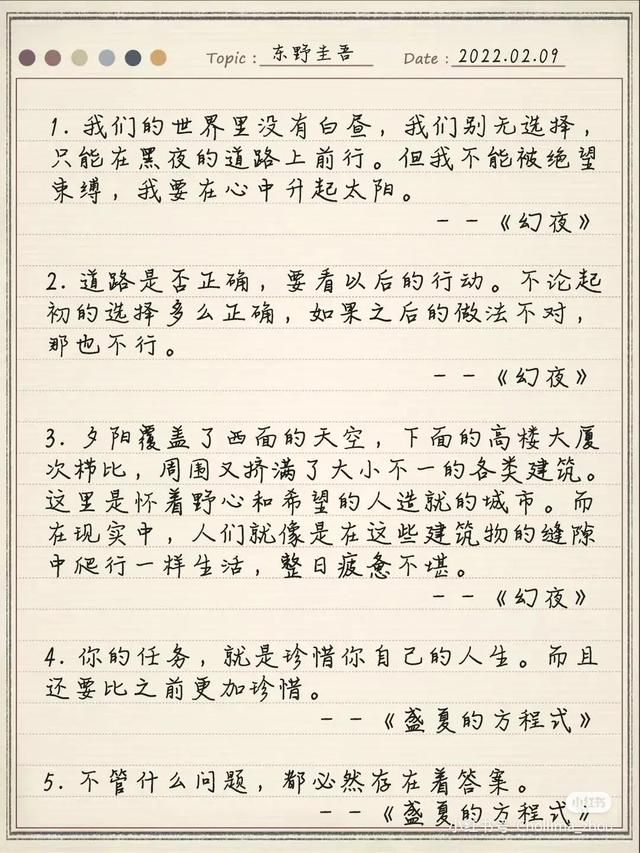 Topic: 东野圭吾 Date: 2022.02.09
1. 我们的世界里没有白昼，我们别无选择，
只能在黑夜的道路上前行。但我不能被绝望
束缚，我要在心中升起太阳。
——《幻夜》
2. 道路是否正确，要看以后的行动。不论起
初的选择多么正确，如果之后的做法不对，
那也不行。
——《幻夜》
3. 夕阳覆盖了西面的天空，下面的高楼大厦
次栉比，周围又挤满了大小不一的各类建筑。
这里是怀着野心和希望的人造就的城市。而
在现实中，人们就像是在这些建筑物的缝隙
中爬行一样生活，整日疲惫不堪。
——《幻夜》
4. 你的任务，就是珍惜你自己的人生。而且
还要比之前更加珍惜。
——《盛夏的方程式》
5. 不管什么问题，都必然存在着答案。
小红书
——《盛夏的方程式》